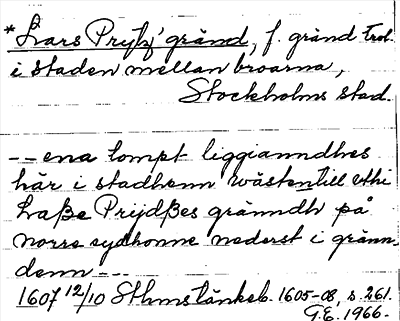 *Lars Prytz' gränd, f. gränd trol.
i staden mellan broarna,
Stockholms stad.
-- ena tompt liggianndhes
här i stadhenn wästentill uthi
Laße Prijdßes gränndh på
norre sydhonne nederst i gränn-
denn ---
1607 12/10 Sthmstänkeb. 1605-08, s. 261.
G.E. 1966.